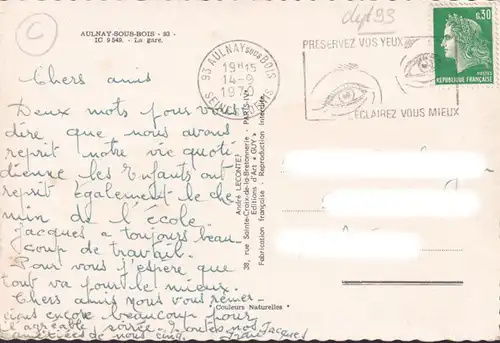 AULNAY-SOUS-BOIS - 93 -
IC. 9549. - La gare.
C
dpt 93
0,30
POSTES
REPUBLIQUE FRANÇAISE
93 AULNAY SOUS BOIS
19H15
14-9
SEINE ST DENIS
PRESERVEZ VOS YEUX
ECLAIREZ VOUS MIEUX
Chers amis
Deux mots pour vous
dire que nous avons
reprit notre vie quoti-
dienne les Enfants ont
reprit également le che-
min de l'école.
Jacques a toujours beau-
coup de travail.
Pour vous j'espère que
tout va pour le mieux.
Chers amis nous vous remer-
cions encore beaucoup pour
l'agréable soirée - Toutes nos
amitiées de nous cinq. Jacques
André LECONTE
38, rue Sainte-Croix-de-la-Bretonnerie - PARIS-IVe
Editions d'Art « GUY »
Fabrication française - Reproduction interdite
"Couleurs Naturelles"